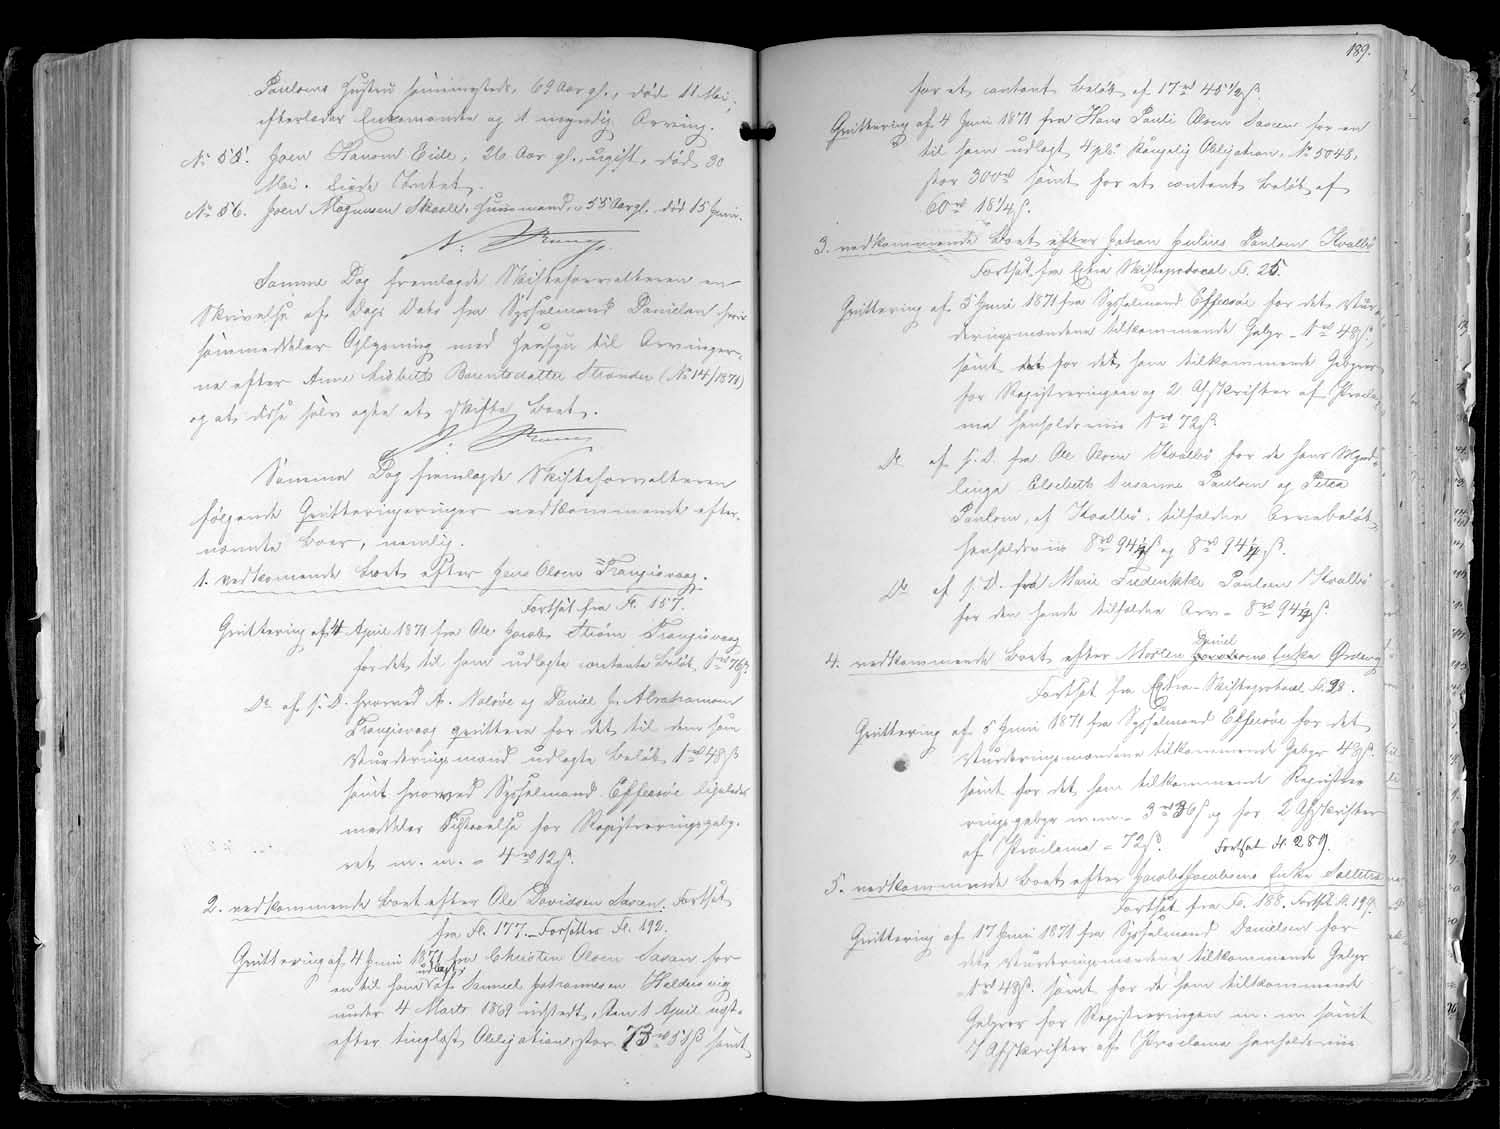 Paulsens Hustru sammesteds, 69 Aar gl., død 11 Mai,
efterlader Enkemanden og 1 myndig Arving.
No 55. Joen Hansen Eide, 26 Aar gl., ugift, død 30
Mai. Eiede Intet.
No 56. Joen Magnusen Skaale, Huusmand, 55 Aar gl. død 15 Juni.
Samme Dag fremlagde Skifteforvalteren en
Skrivelse af Dags Dato fra Sysselmand Danielsen hvori
sammeddeles Oplysning med Hensyn til Arvinger-
ne efter Anne Lisbeth Barentsdatter Strender (No 14/1871)
og at disse selv agte at skifte Boet.
Samme Dag fremlagde Skifteforvalteren
følgende Qvitteringeringer vedkommende efter-
nævnte Boer, nemlig.
1. vedkommende Boet efter Jens Olsen Trangisvaag.
Fortsat fra Fl. 157.
Qvittering af 4 April 1871 fra Ole Jacob Strøm Trangisvaag
for det til ham udlagte contante Beløb, 1 rd 76 ß.
Do af s. D. hvorved A. Nolsøe og Daniel J. Abrahamsen
Trangisvaag qvittere for det til dem som
Vurderingsmænd udlagte Beløb 1 rd 48 ß
samt hvorved Sysselmand Effersøe ligeledes
meddeler Tilstaaelse for Registreringsgeby-
ret m. m. = 4 rd 12 ß.
2. vedkommende Boet efter Ole Davidsen Saxen. Fortsat
fra Fl. 177. Forsættes Fl. 192.
Qvittering af 4 Juni 1871 fra Christen Olsen Saxen for
udlagt
en til ham af Samuel Johannesen Heldenvig
under 4 Marts 1869 udstedt, den 1 April næst-
efter tinglæst Obligation, stor 73 rd 58 ß samt
189.
for et contant Beløb af 17 rd 45 1/2 ß.
Qvittering af 4 Juni 1871 fra Hans Pauli Olsen Saxen for en
til ham udlagt 4 pCt. Kongelig Obligation, No 5048,
stor 300 rd samt for et contant Beløb af
60 rd 18 1/4 ß.
3. vedkommende Boet efter Johan Julius Paulsen Kvalbø
Fortsat fra Extra Skifteprotocol Fl. 25.
Qvittering af 5 Juni 1871 fra Sysselmand Effersøe for det Vur-
deringsmændene tilkommende Gebyr = 1 rd 48 ß,
samt for det ham tilkommende Gebyrer
for Registreringen og 2 Afskrifter af Procla-
ma henholdsviis 1 rd 72 ß.
Do af s. D. fra Ole Olsen Kvalbø for de hans Mynd-
linge Elsebeth Susanne Paulsen og Petra
Paulsen, af Kvalbø, tilfaldne Arvebeløb,
henholdsviis 8 rd 94 1/4 ß og 8 rd 94 1/4 ß.
Do af s. D. fra Marie Frederikke Paulsen Kvalbø
for den hende tilfaldne Arv = 8 rd 94 1/4 ß.
Daniel
4. vedkommende Boet efter Morten Jacobsens Enke Ørdevig
Fortsat fra Extra-Skifteprotocol Fl. 28.
Qvittering af 5 Juni 1871 fra Sysselmand Effersøe for det
Vurderingsmændene tilkommende Gebyr 48 ß.
samt for det ham tilkommende Registre
ringsgebyr m. m. = 3 rd 36 ß og for 2 Afskrifter
af Proclama = 72 ß. Fortsat Fl. 289.
5. vedkommende Boet efter Jacob Jacobsens Enke Selletræ
Fortsat fra Fl. 188. Fortsat Fl. 199.
Qvittering af 17 Juni 1871 fra Sysselmand Danielsen for
det Vurderingsmændene tilkommende Gebyr
= 1 rd 48 ß. samt for de ham tilkommende
Gebyrer for Registreringen m. m. samt
Afskrifter af Proclama henholdsviis